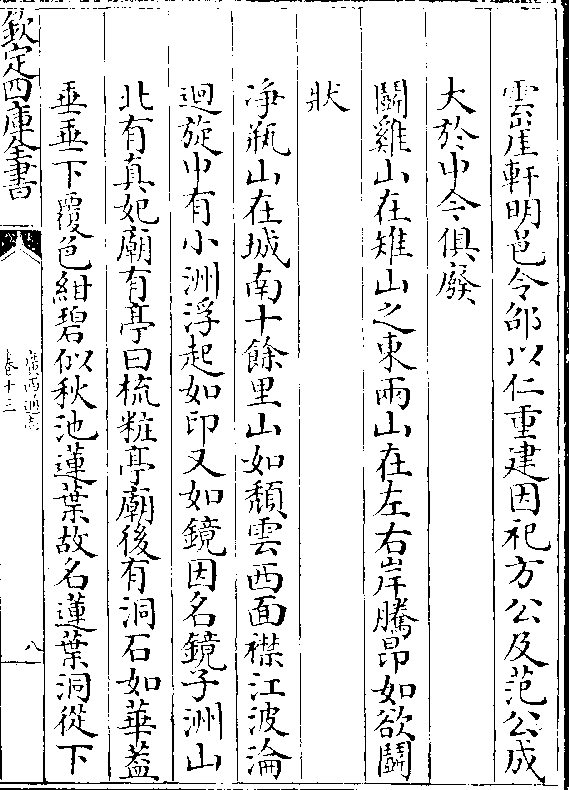 雲崖軒明邑令邵以仁重建因祀方公及范公成
大於中今俱廢
鬭雞山在雉山之東兩山在左右岸騰昂如欲鬭
狀
淨瓶山在城南十餘里山如頽雲西面襟江波淪
迴旋中有小洲浮起如印又如鏡因名鏡子洲山
北有真妃廟有亭曰梳粧亭廟後有洞石如華葢
垂垂下覆色紺碧似秋池蓮葉故名蓮葉洞從下
欽定四庫全書
廣西通志
卷十三
八